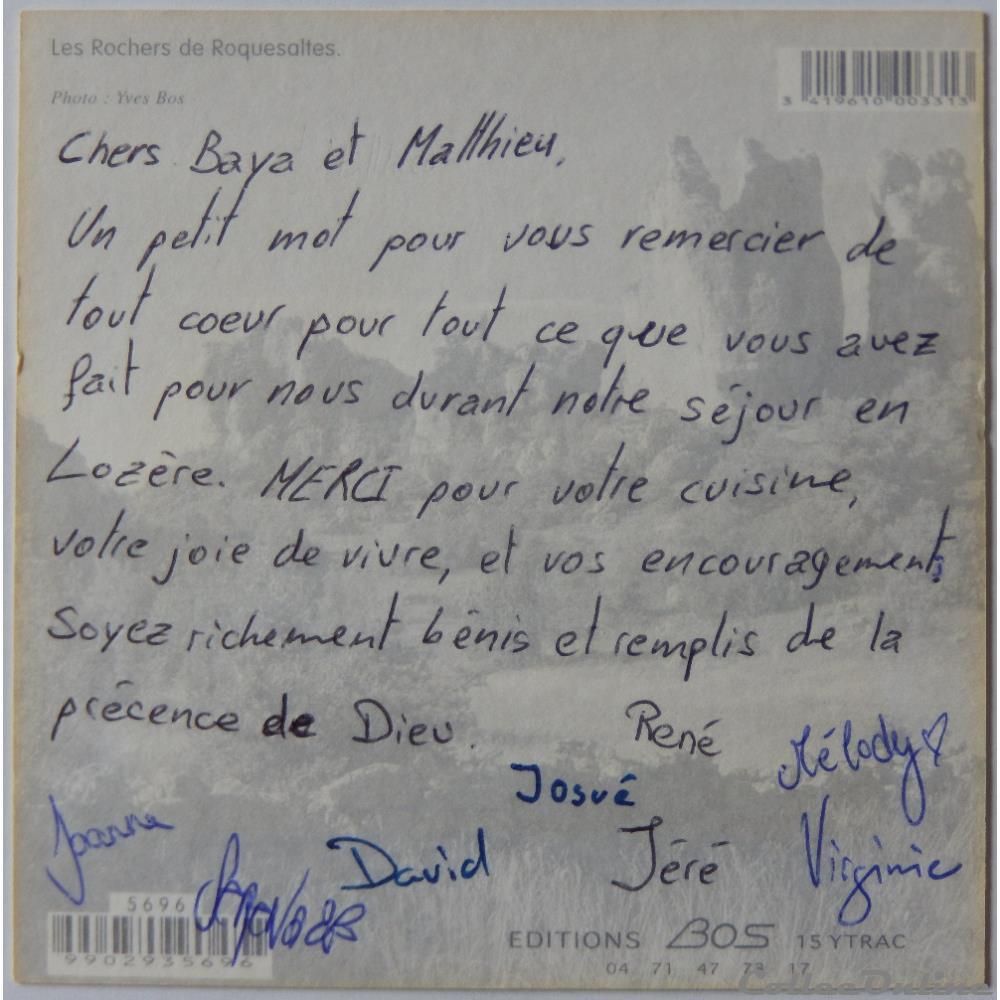 Les Rochers de Roquesaltes.
Photo : Yves Bos
3 419610 003313
Chers Baya et Matthieu,
Un petit mot pour vous remercier de
tout coeur pour tout ce que vous avez
fait pour nous durant notre séjour en
Lozère. MERCI pour votre cuisine,
votre joie de vivre, et vos encouragements
Soyez richement bénis et remplis de la
précence de Dieu.
René
Mélody
Josué
Joanna
David
Jéré
Virginie
5696
9902935696
EDITIONS BOS 15 YTRAC
04 71 47 73 17